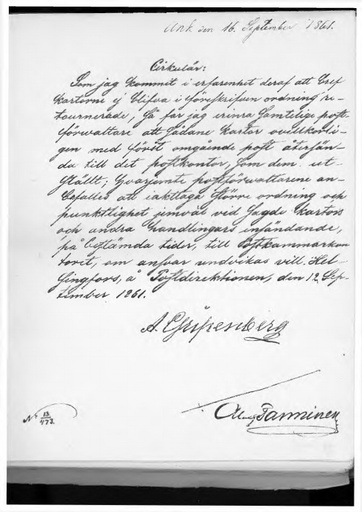 Ank. den 16. September 1861.
Cirkulär:
Som jag kommit i erfarenhet deraf att Bref
kartorne ej blifva i föreskrifven ordning re-
tournerade, så får jag erinra samtelige post-
förvaltare att sådane kartor ovillkorli-
gen med först omgående post återsän-
da till det postkontor, som dem ut-
ställt; hvarjemte postförvaltarene an-
befalles att iakttaga större ordning och
punktlighet jemväl vid sagde kartors
och andra handlingars insändande,
på bestämda tider, till Postkammarkon-
toret, om ansvar undvikas vill. Hel-
singfors, å Postdirektionen, den 12 Sep-
tember 1861.
A. Gripenberg
Alex Tanninen
N° 13/472